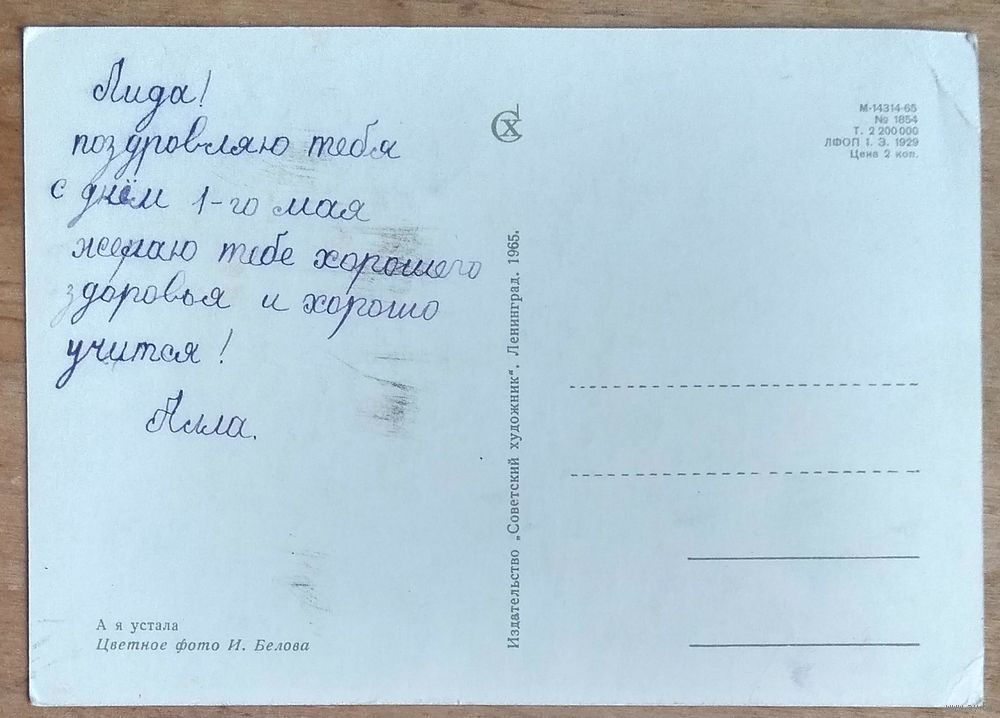 Лида!
поздровляю тебя
с днём 1-го мая
желаю тебе хорошего
здоровья и хорошо
учится!
Алла.
А я устала
Цветное фото И. Белова
Издательство „Советский художник“. Ленинград. 1965.
СХ
М-14314-65
№ 1854
Т. 2 200 000
ЛФОП 1. Э. 1929
Цена 2 коп.